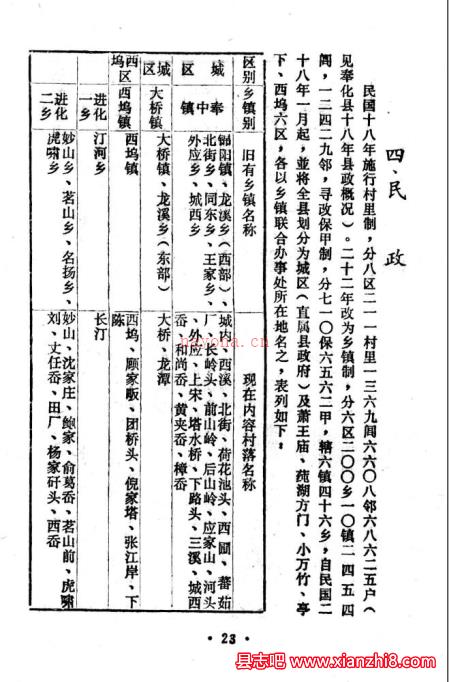 四、民政
民国十八年施行村里制，分八区二一一村里一三六九闾六六〇八邻六八六二五户（
见奉化县十八年县政概况）。二十二年改为乡镇制，分六区二〇〇乡一〇镇二四五四
闾，一二四二九邻，寻改保甲制，分七一〇保六五六二甲，辖六镇四十六乡，自民国二
十八年一月起，並将全县划分为城区（直属县政府）及萧王庙、莼湖方门、小万竹、亭
下、西坞六区，各以乡镇联合办事处所在地名之，表列如下。
区别 乡镇别 旧有乡镇名称 现在内容村落名称
城区 奉中镇
锦阳镇、龙溪乡（西部）、
北街乡、同东乡、王家乡、
外应乡、城西乡
城内、西溪、北街、荷花池头、西圌、蕃茹
厂、长岭头、前山岭、后山岭、应家山、河头
外应、上宋、塔水桥、下路头、三溪、城西
岙、和尚岙、黄夹岙、樟岙
城区 大桥镇 大桥镇、龙溪乡（东部） 大桥、龙潭
西坞区 西坞镇 西坞镇
西坞、顾家畈、团桥头、倪家塔、张江岸、下
陈
进化一乡 汀河乡 长汀
进化二乡
妙山乡、茗山乡、名扬乡、
虎啸乡
妙山、沈家庄、鲍家、俞葛岙、茗山前、虎啸
刘、丈任岙、田厂、杨家矸头、西岙
·23·
nayona.cn
县志吧 www.xianzhi8.com